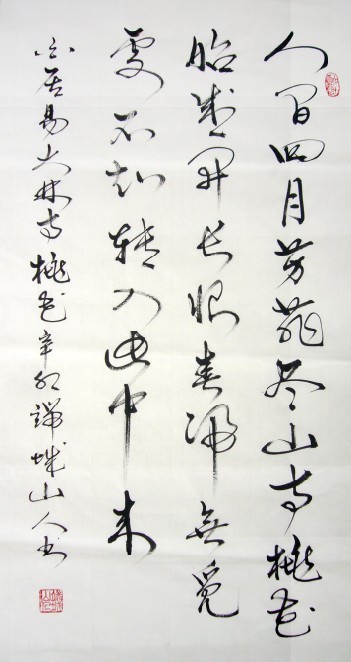 人间四月芳菲尽山寺桃花
始盛开长恨春归無觅
处不知转入此中来
白居易大林寺桃花辛卯城山人书